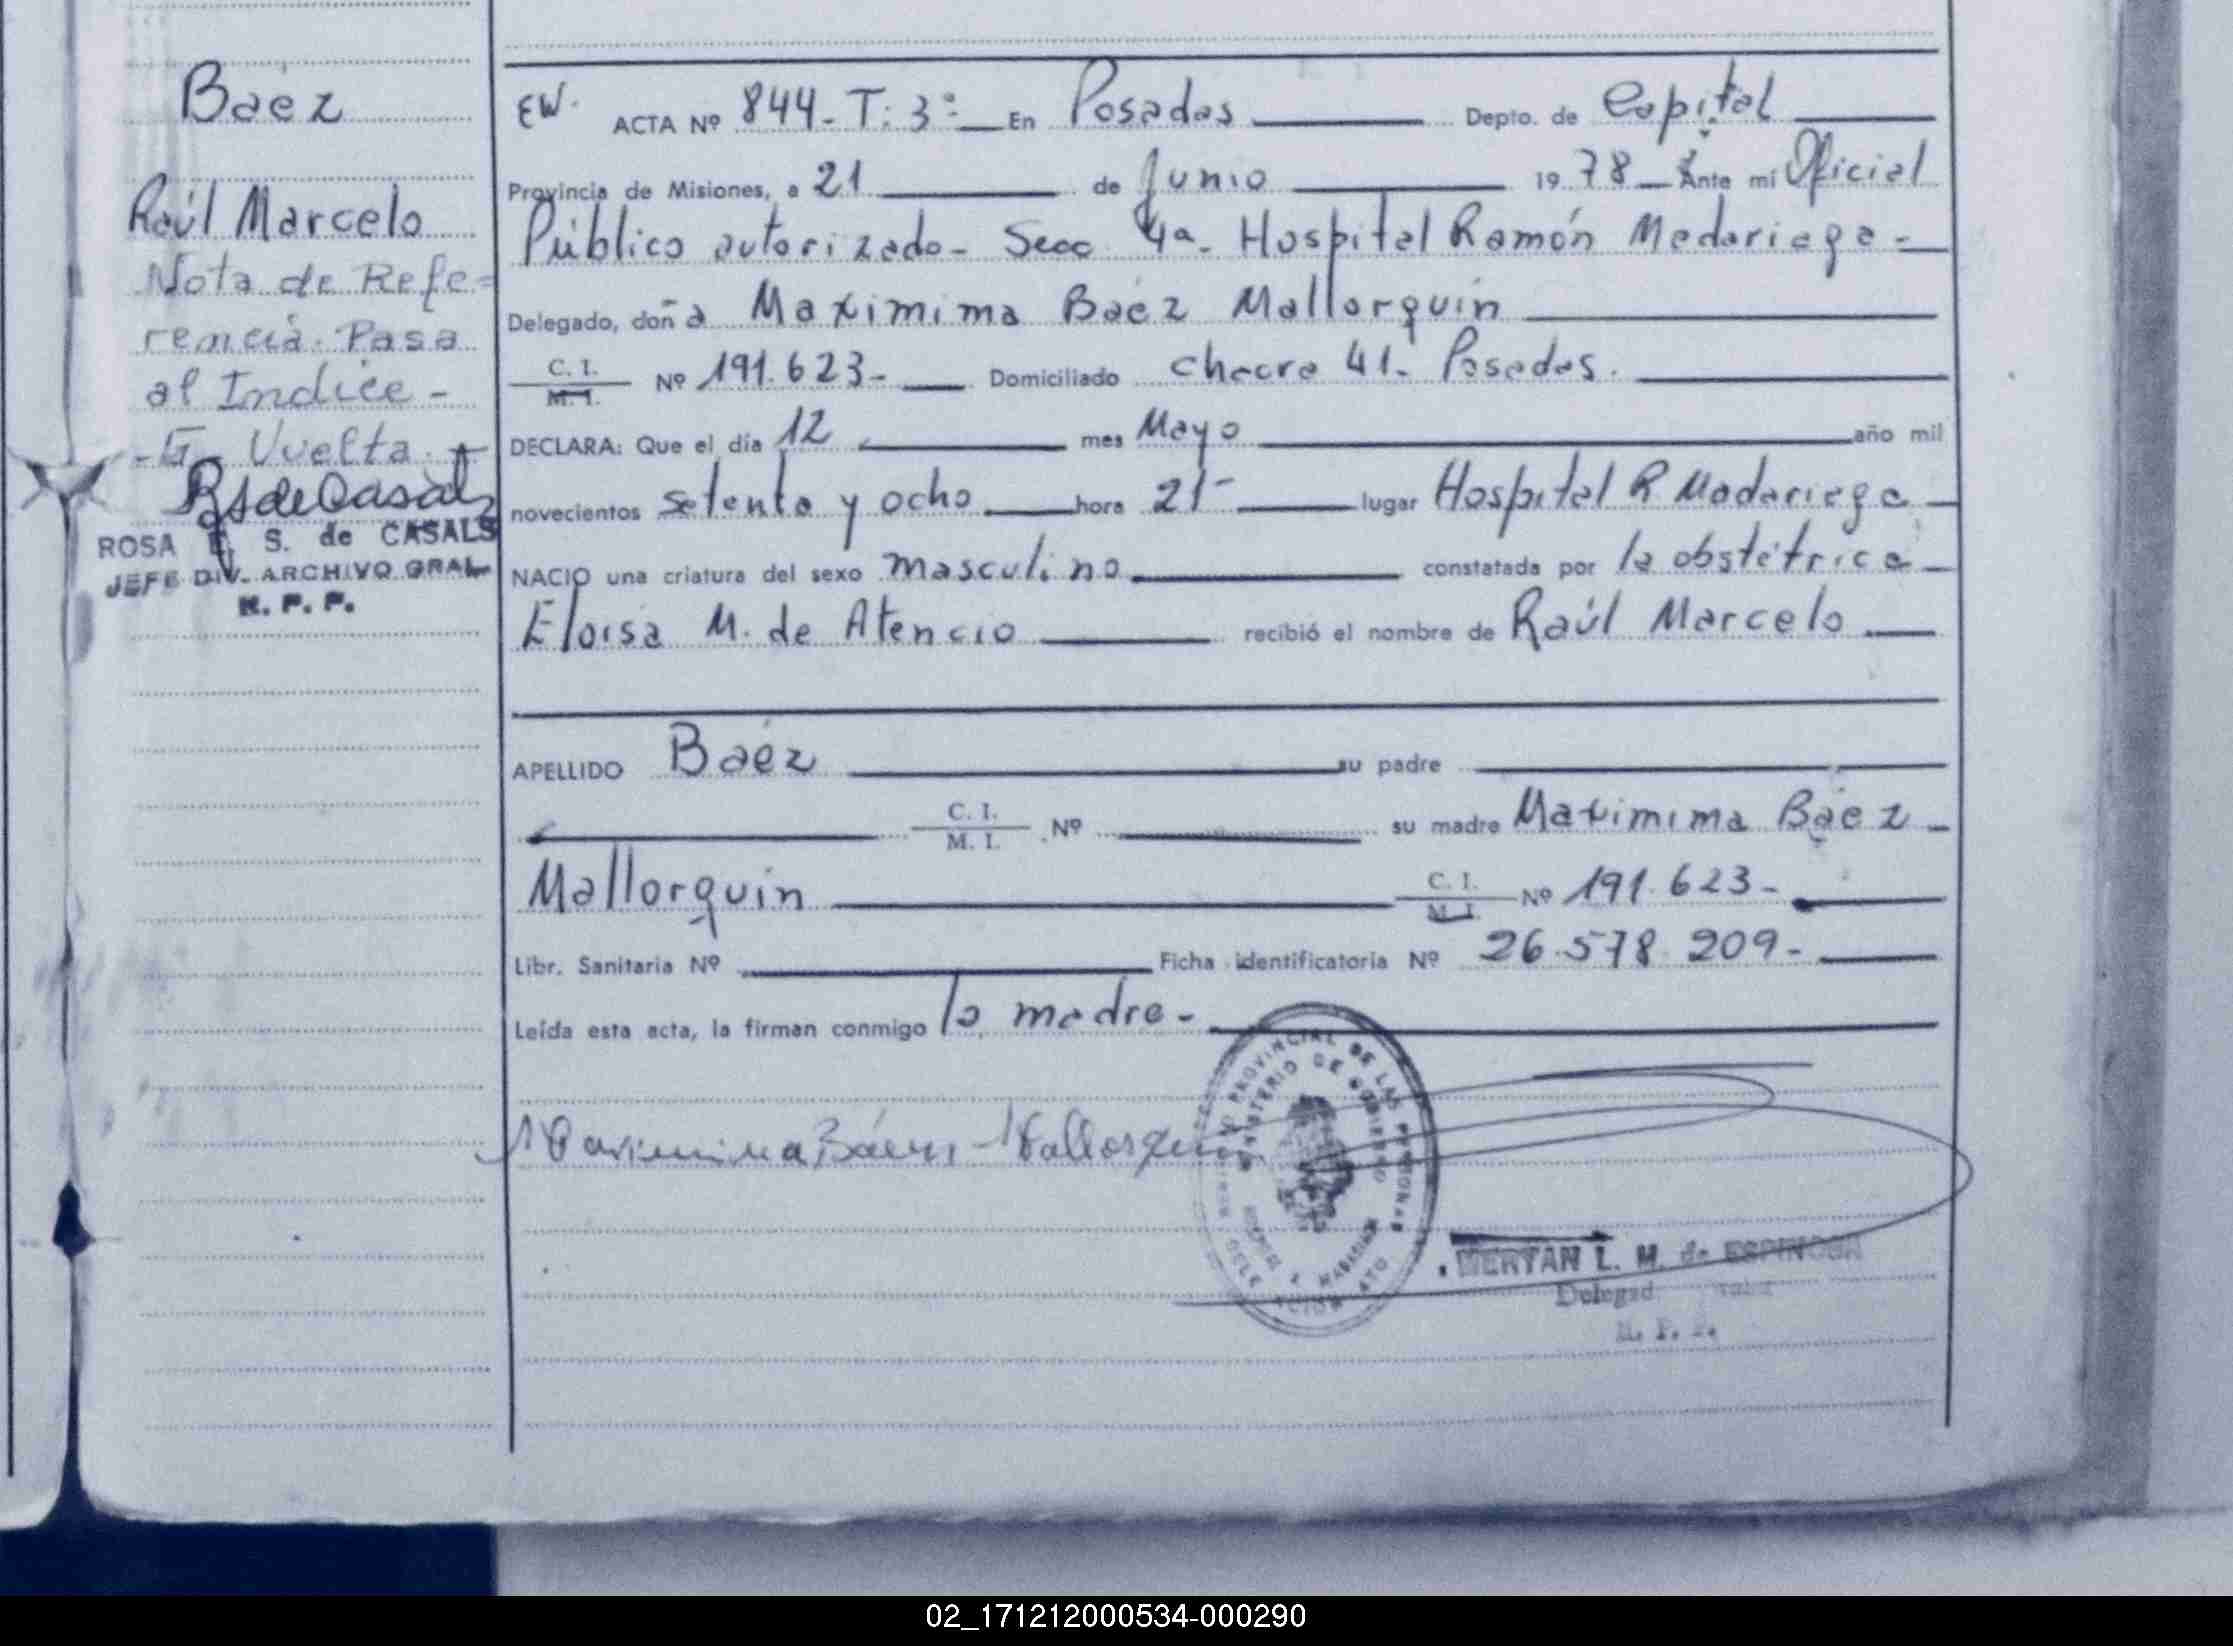 Baéz
Raúl Marcelo
Nota de Refe=
rencia. Pasa
al Indice -
Vuelta.
RSdeCasals
ROSA E. S. de CASALS
JEFE DIV. ARCHIVO GRAL
R. P. P.
EW. ACTA Nº 844 - T: 3º En Posadas Depto. de Capital
Provincia de Misiones, a 21 de Junio 1978 Ante mi Oficial
Público autorizado - Secc 4ª - Hospital Ramón Madariaga -
Delegado, doña Maximima Baéz Mallorquin
C. I.
M. I. Nº 191.623 - Domiciliado chacra 41. Posadas.
DECLARA: Que el día 12 mes Mayo año mil
novecientos setenta y ocho hora 21 - lugar Hospital R Madariaga
NACIO una criatura del sexo masculino constatada por la obstétrica
Eloisa M. de Atencio recibió el nombre de Raúl Marcelo
APELLIDO Baéz su padre
C. I.
M. I. Nº su madre Maximima Báez -
Mallorquin C. I.
M. I. Nº 191.623 -
Libr. Sanitaria Nº Ficha identificatoria Nº 26.578.209 -
Leída esta acta, la firman conmigo la madre -
Maximima Báez Mallorquin
PROVINCIAL DE LAS PERSONAS
MINISTERIO DE GOBIERNO
L. M. de ESPINOSA
R. P. P.
02_171212000534-000290